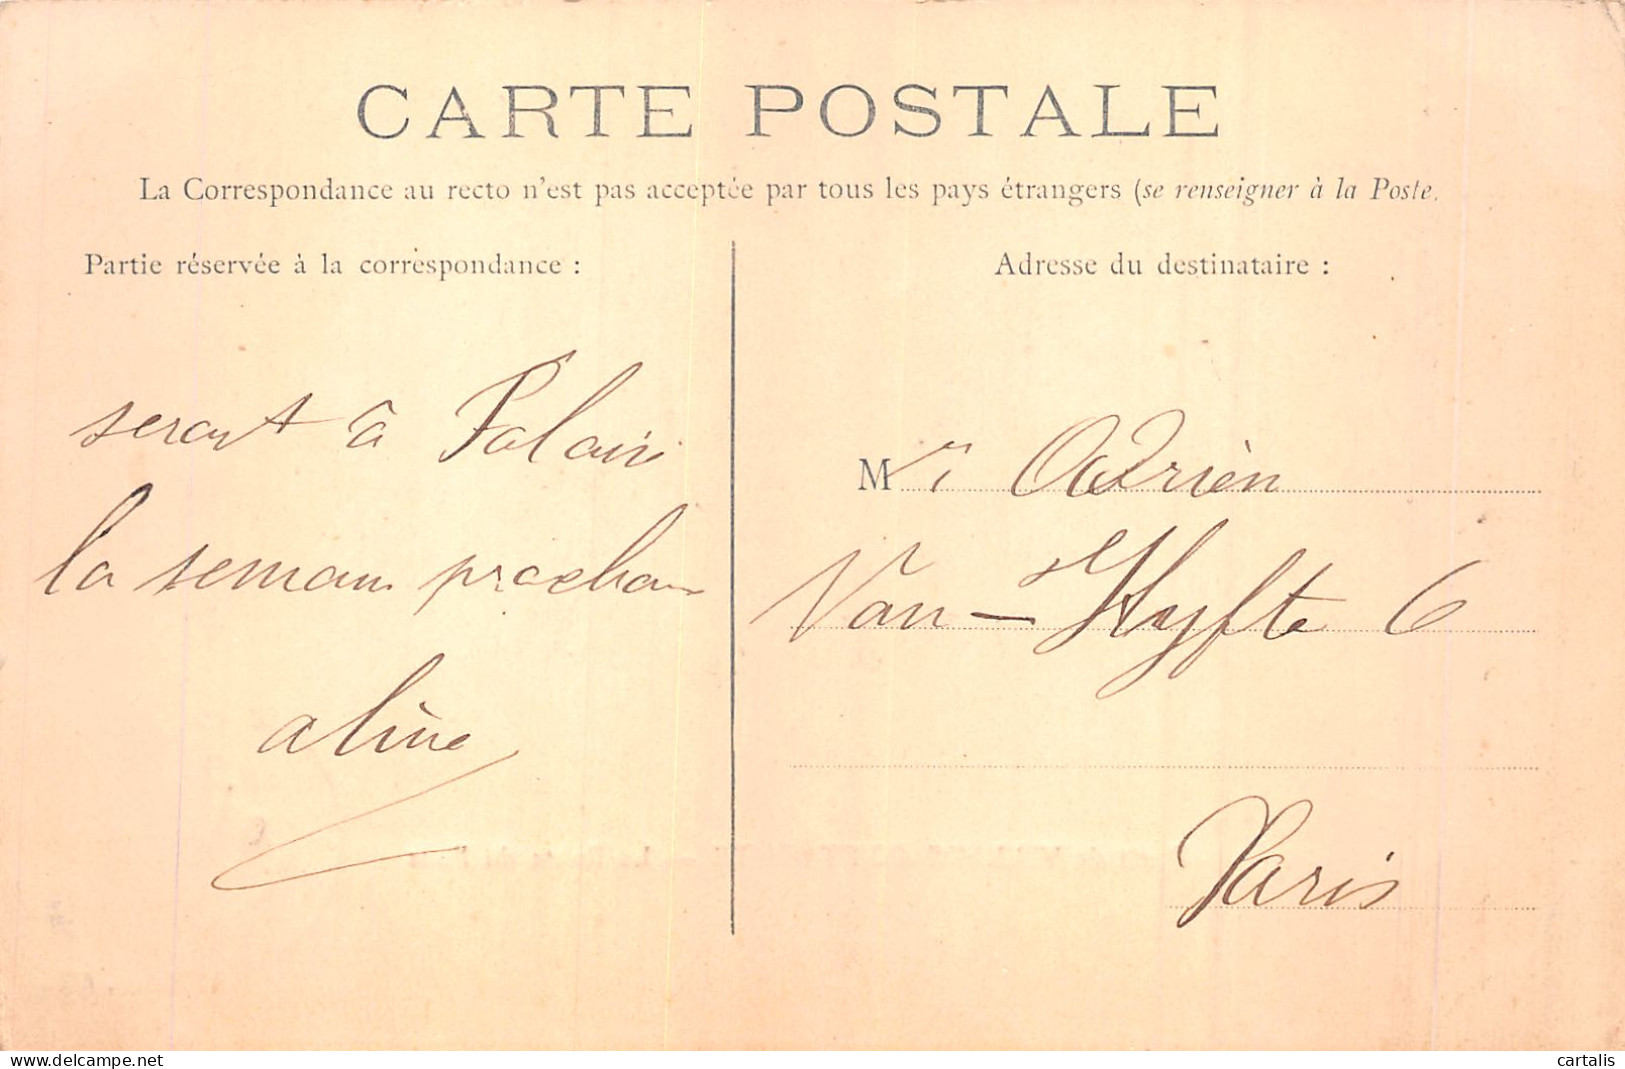 CARTE POSTALE
La Correspondance au recto n'est pas acceptée par tous les pays étrangers (se renseigner à la Poste.
Partie réservée à la correspondance :
seront à
la semain prochain
aline
Adresse du destinataire :
M r Adrien
Van-Hyfte 6
Paris
cartalis